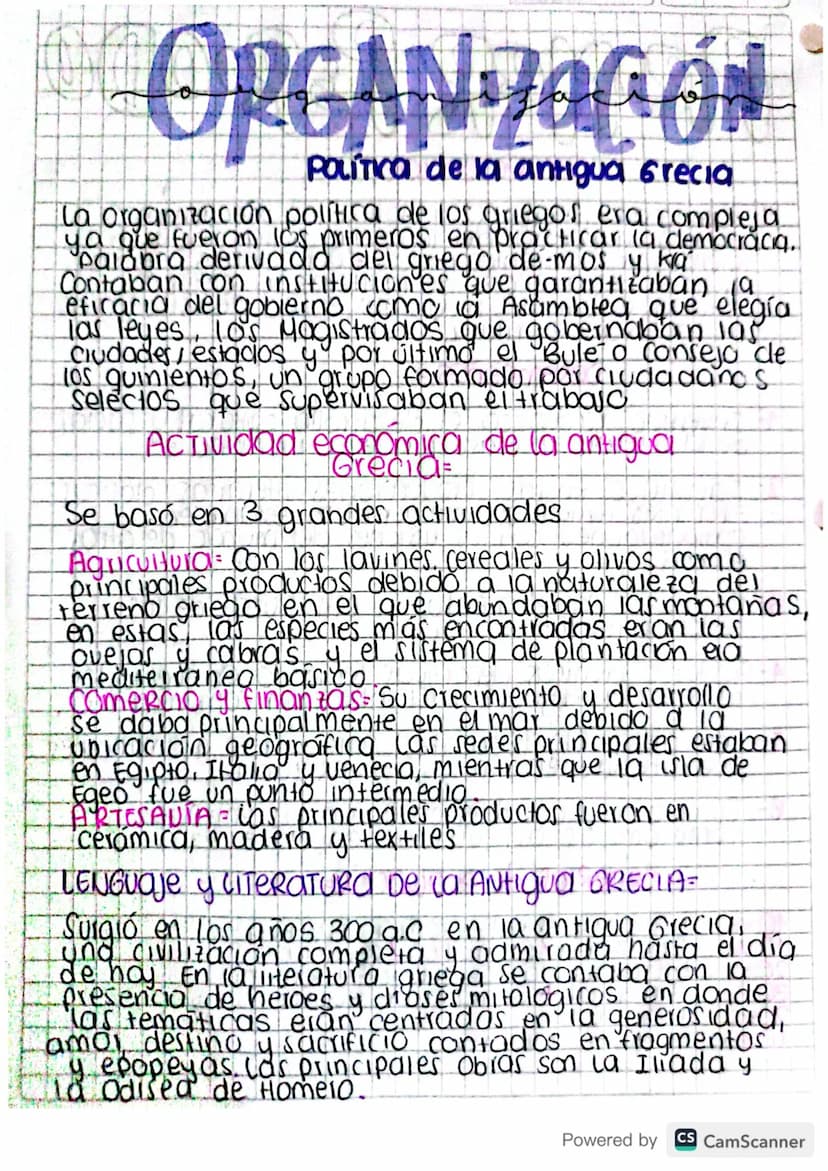 ORGANIZACIÓN
organización
POLÍTICA de la antigua Grecia
La organización política de los griegos era compleja
ya que fueron los primeros en practicar la democracia.
palabra derivada del griego de-mos y kra
Contaban con instituciones que garantizaban la
eficacia del gobierno como la Asamblea que elegía
las leyes, los Magistrados que gobernaban las
ciudades/estados y por último el Bule o Consejo de
los quinientos, un grupo formado por ciudadanos
selectos que supervisaban el trabajo
Actividad económica de la antigua
Grecia=
Se basó en 3 grandes actividades
Agricultura= Con los lavines, cereales y olivos como
principales productos debido a la naturaleza del
terreno griego en el que abundaban las montañas,
en estas, las especies más encontradas eran las
ovejas y cabras y el sistema de plantación era
mediterraneo básico
Comercio y finanzas= Su crecimiento y desarrollo
se daba principalmente en el mar debido a la
ubicación geográfica Las sedes principales estaban
en Egipto, Italia y Venecia, mientras que la isla de
Egeo fue un punto intermedio.
ARTESAUÍA= Los principales productos fueron en
cerámica, madera y textiles
LENGUAje y LITERATURA DE LA ANTIGUA GRECIA=
Surgió en los años 300 a.C en la antigua Grecia,
una civilización completa y admirada hasta el día
de hoy En la literatura griega se contaba con la
presencia de heroes y dioses mitologicos en donde
las temáticas eran centradas en la generosidad,
amor, destino y sacrificio contados en fragmentos
y epopeyas. Las principales obras son La Iliada y
la Odisea de Homero.
Powered by CS CamScanner